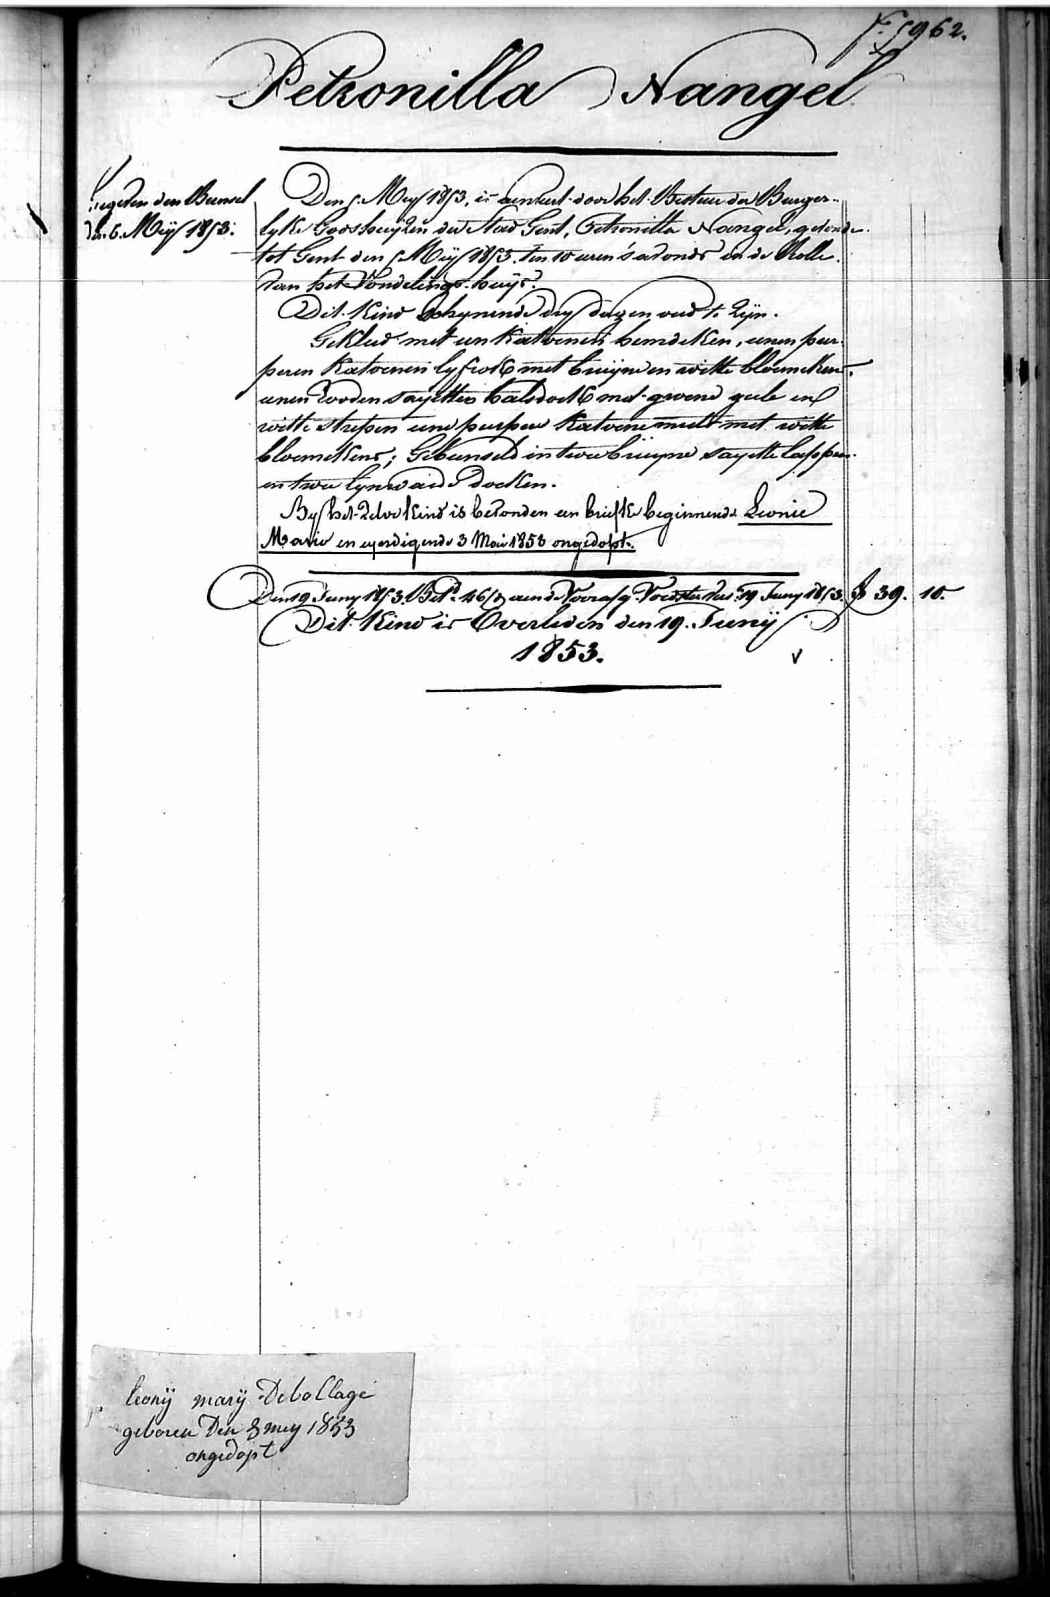 f.° 5962.
Petronilla Nangel
gegeven den Bunsel
den 6. Meÿ 1853.
Den 5. Mey 1853, is aenveert door het Bestuer der Burger-
lyke Godshuyzen der Stad Gent, Petronilla Nangel, gevonden
tot Gent den 5 Meÿ 1853. ten 10 uren s'avonds in de Rolle
van het Vondelings-huys.
Dit Kind schynende dry dagen oud te zyn.
Gekleed met een Katoenen hemdeken, eenen pur-
peren Katoenen lyfrok met bruyne en witte bloemekens,
eenen rooden sayetten halsdoek met groene gele en
witte strepen eene purpere Katoene muts met witte
bloemekens; Gebunseld in twee bruyne sayette lappen
en twee lynwaide doeken.
By het zelve kind is bevonden een briefke beginnende Leonie
Marie en eyndigende 3 Mai 1853 ongedopt.
Den 19 Juny 1853. Bet.d 46/d aen de Voorsz. Voedster tot 19 Juny 1853. f 39. 10.
Dit Kind is Overleden den 19. Junÿ
1853.
v
leonÿ marÿ Debollage
geboren Den 3 mey 1853
ongedopt